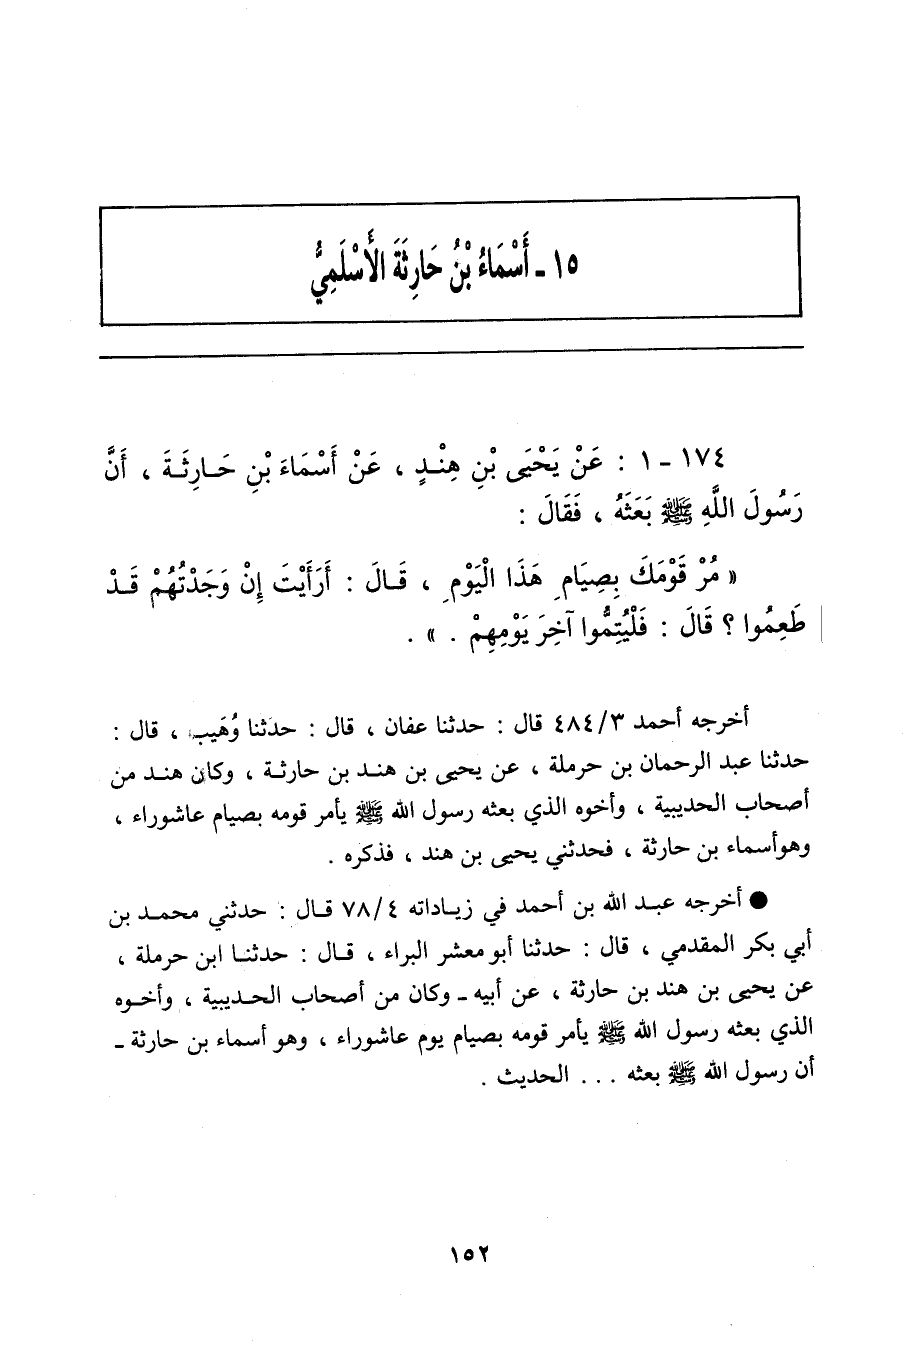 ١٥ - أَسْمَاءُ بْنُ حَارِثَةَ الأَسْلَمِيُّ
١٧٤ - ١ : عَنْ يَحْيَى بْنِ هِنْـدٍ ، عَنْ أَسْمَاءَ بْنِ حَـارِثَـةَ ، أَنَّ
رَسُولَ اللَّهِ ﷺ بَعَثَهُ ، فَقَالَ :
« مُرْ قَوْمَكَ بِصِيَامِ هَذَا الْيَوْمِ ، قَـالَ : أَرَأَيْتَ إِنْ وَجَدْتُهُمْ قَـدْ
طَعِمُوا ؟ قَالَ : فَلْيُتِمُّوا آخِرَ يَوْمِهِمْ . » .
أخرجه أحمد ٤٨٤/٣ قال : حدثنا عفان ، قال : حدثنا وُهَيب ، قال :
حدثنا عبد الرحمان بن حرملة ، عن يحيى بن هنـد بن حارثـة ، وكان هنـد من
أصحاب الحديبية ، وأخوه الذي بعثه رسول الله ﷺ يأمر قومه بصيام عاشوراء ،
وهوأسماء بن حارثة ، فحدثني يحيى بن هند ، فذكره .
● أخرجه عبـد الله بن أحمد في زيـاداته ٧٨/٤ قـال : حدثني محمـد بن
أبي بكر المقدمي ، قال : حدثنا أبو معشر البراء ، قـال : حدثنـا ابن حرملة ،
عن يحيى بن هند بن حارثة ، عن أبيه - وكان من أصحاب الحـديبية ، وأخـوه
الذي بعثه رسول الله ﷺ يأمر قومه بصيام يوم عاشوراء ، وهو أسماء بن حارثة -
أن رسول الله ﷺ بعثه . . . الحديث .
١٥٢